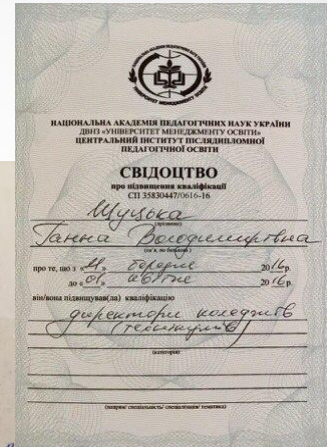 НАЦІОНАЛЬНА АКАДЕМІЯ ПЕДАГОГІЧНИХ НАУК УКРАЇНИ
ДВНЗ «УНІВЕРСИТЕТ МЕНЕДЖМЕНТУ ОСВІТИ»
ЦЕНТРАЛЬНИЙ ІНСТИТУТ ПІСЛЯДИПЛОМНОЇ
ПЕДАГОГІЧНОЇ ОСВІТИ
СВІДОЦТВО
про підвищення кваліфікації
СП 35830447/0616-16
Щуцька
(прізвище)
Ганна Володимирівна
(ім'я, по батькові)
про те, що з « » березня 2016р.
до «01» квітня 2016р.
він/вона підвищував(ла) кваліфікацію
директори коледжів
(технікумів)
(категорія)
(напрям/ спеціальність/ спеціалізація/ тематика)